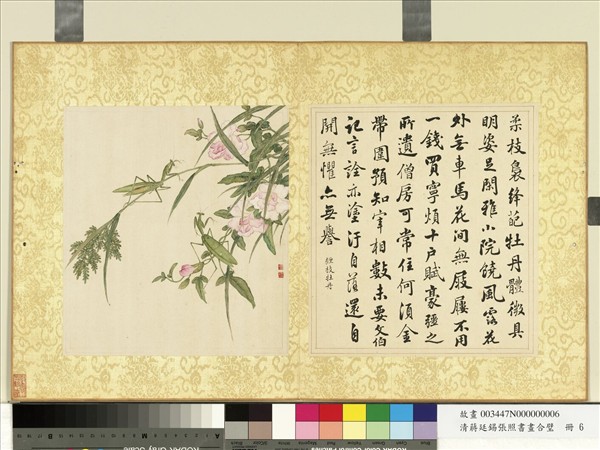 柔枝裊絳葩牡丹體微具
明姿足閒雅小院饒風露花
外無車馬花間無屐屨不用
一錢買寧煩十戶賦豪強之
所遺僧房可常住何須金
帶圍預知宰相數未要文伯
記言詮亦塗汙自落還自
開無懼亦無譽 纏枝牡丹
故畫 003447N000000006
清蔣廷錫張照書畫合璧 冊 6